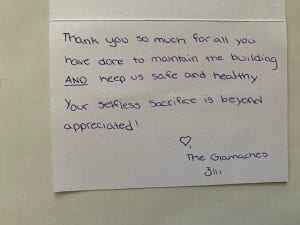 Thank you so much for all you
have done to maintain the building
AND keep us safe and healthy.
Your selfless sacrifice is beyond
appreciated!
♡,
The Gamaches
3111